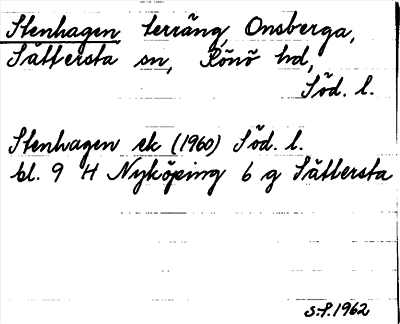 Stenhagen terräng, Onsberga,
Sättersta sn, Rönö hd,
Söd. l.
Stenhagen ek (1960) Söd. l.
bl. 9 H Nyköping 6 g Sättersta
S.P. 1962